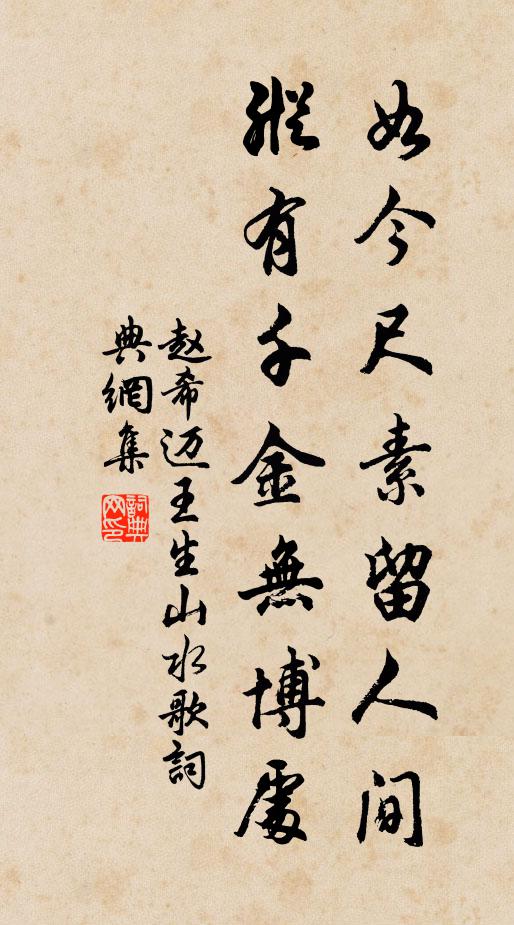 如今尺素留人間
縱有千金無博處
赵希迈王生山水歌詞
典網集
詞典網印